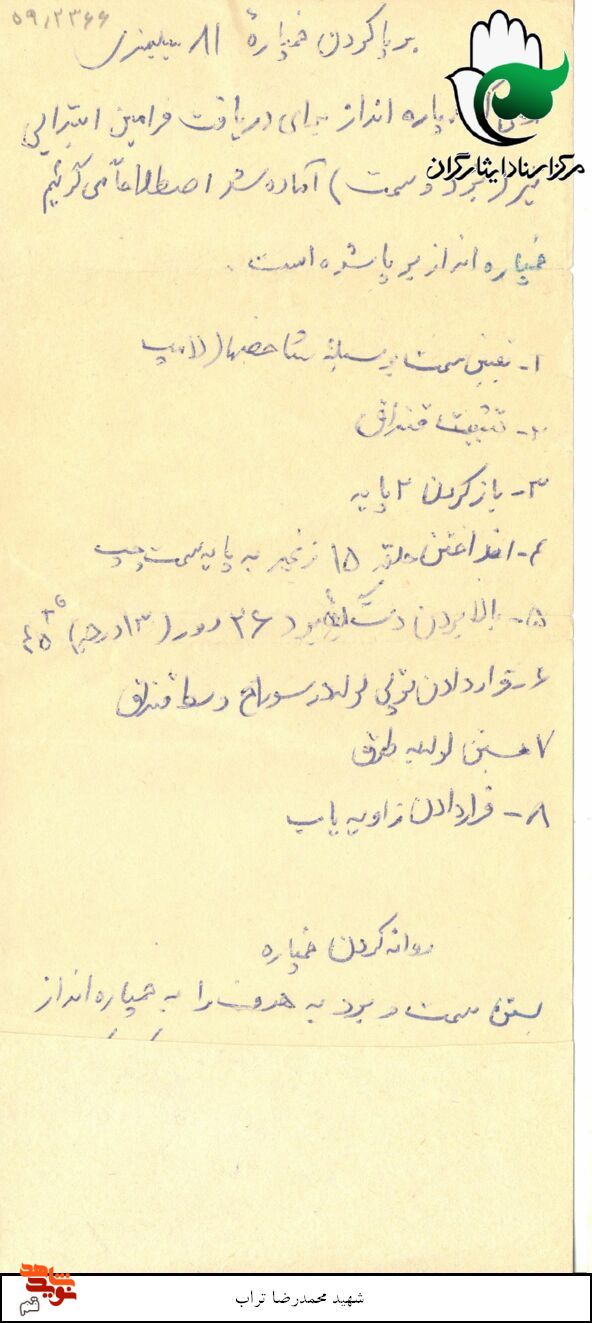 ۵۹/۲۳۶۶
برپا کردن خمپارهٔ ۸۱ میلیمتری
پاره انداز برای دریافت فرامین ابتدایی
تیر (برد و سمت) آماده شد اصطلاحاً می‌گوئیم
خمپاره انداز برپا شده است.
۱- تعیین سمت بوسیلهٔ شاخصها
۲- تثبیت قنداق
۳- باز کردن ۲ پایه
۴- انداختن حلقه ۱۵ زنجیر به پایه سمت چپ
۵- بالا بردن دستگاه برد ۲۶ دور (۱۳ درجه) ۴۵
۶- قرار دادن توپی لوله در سوراخ وسط قنداق
۷ بستن لوله به طوق
۸- قرار دادن زاویه یاب
روانه کردن خمپاره
بستن سمت و برد به هدف را به خمپاره انداز
مرکز اسناد ایثارگران
نوید شاهد
قم
شهید محمدرضا تراب